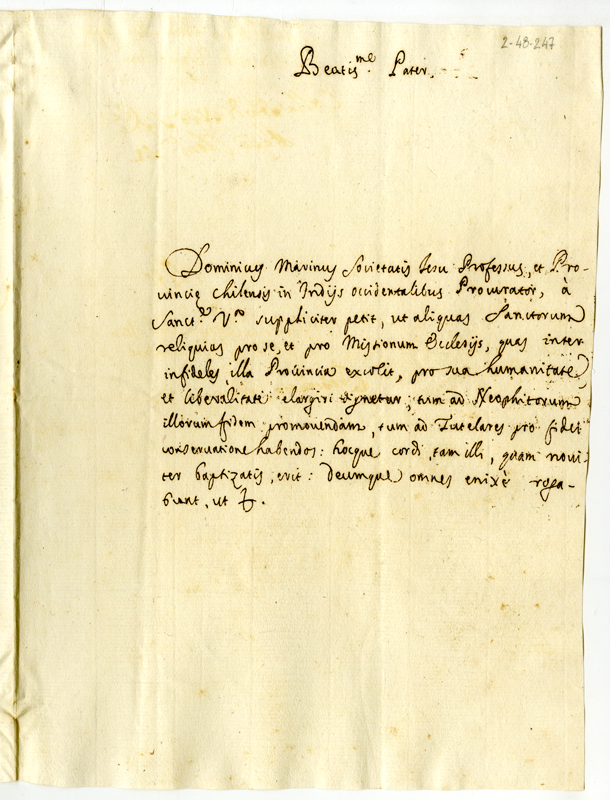 2-48-247
Beatis.me Pater
Dominicus Marinus Societatis Iesu Professus, et Pro-
uincię Chilensis in Indijs occidentalibus Procurator, à
Sanct.te V.ra suppliciter petit, ut aliquas Sanctorum
reliquias pro se, et pro Missionum Ecclesijs, quas inter
infideles illa Prouincia excolit, pro sua humanitate,
et liberalitate elargiri dignetur; tum ad Neophitorum
illorum fidem promouendam, tum ad Tutelares pro fidei
conseruatione habendos: hocque cordi tam illi, quam noui-
ter baptizatis, erit: Deumque omnes enixè roga-
bunt, ut